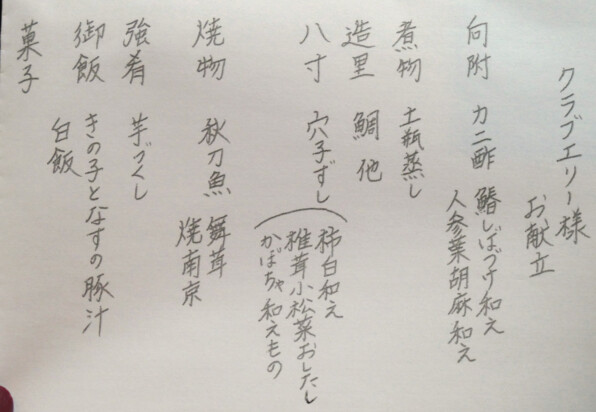 クラブエリー様
お献立
向附 カニ酢 鰆しばづけ和え
人参葉胡麻和え
煮物 土瓶蒸し
造里 鯛 他
八寸 穴子ずし
柿白和え
椎茸小松菜おしたし
かぼちゃ和えもの
焼物 秋刀魚 舞茸
焼南京
強肴 芋づくし
御飯 きの子となすの豚汁
白飯
菓子